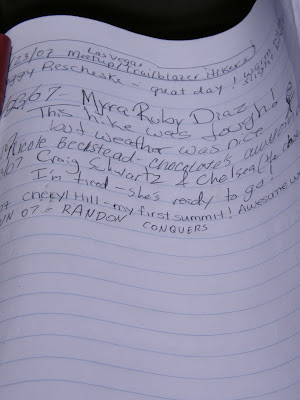 Las Vegas
/23/07 Meetup/Trailblazer Hikers
Peggy Reschenske - great day!
- Myra Ruby Diaz
This hike was tough!
but weather was nice.
Nicole Beckstead - chocolate's
/07 Craig Schwartz & Chelsea (the dog)
I'm tired - she's ready to go!
Cheryl Hill - my first summit! Awesome
07 - RANDON CONQUERS